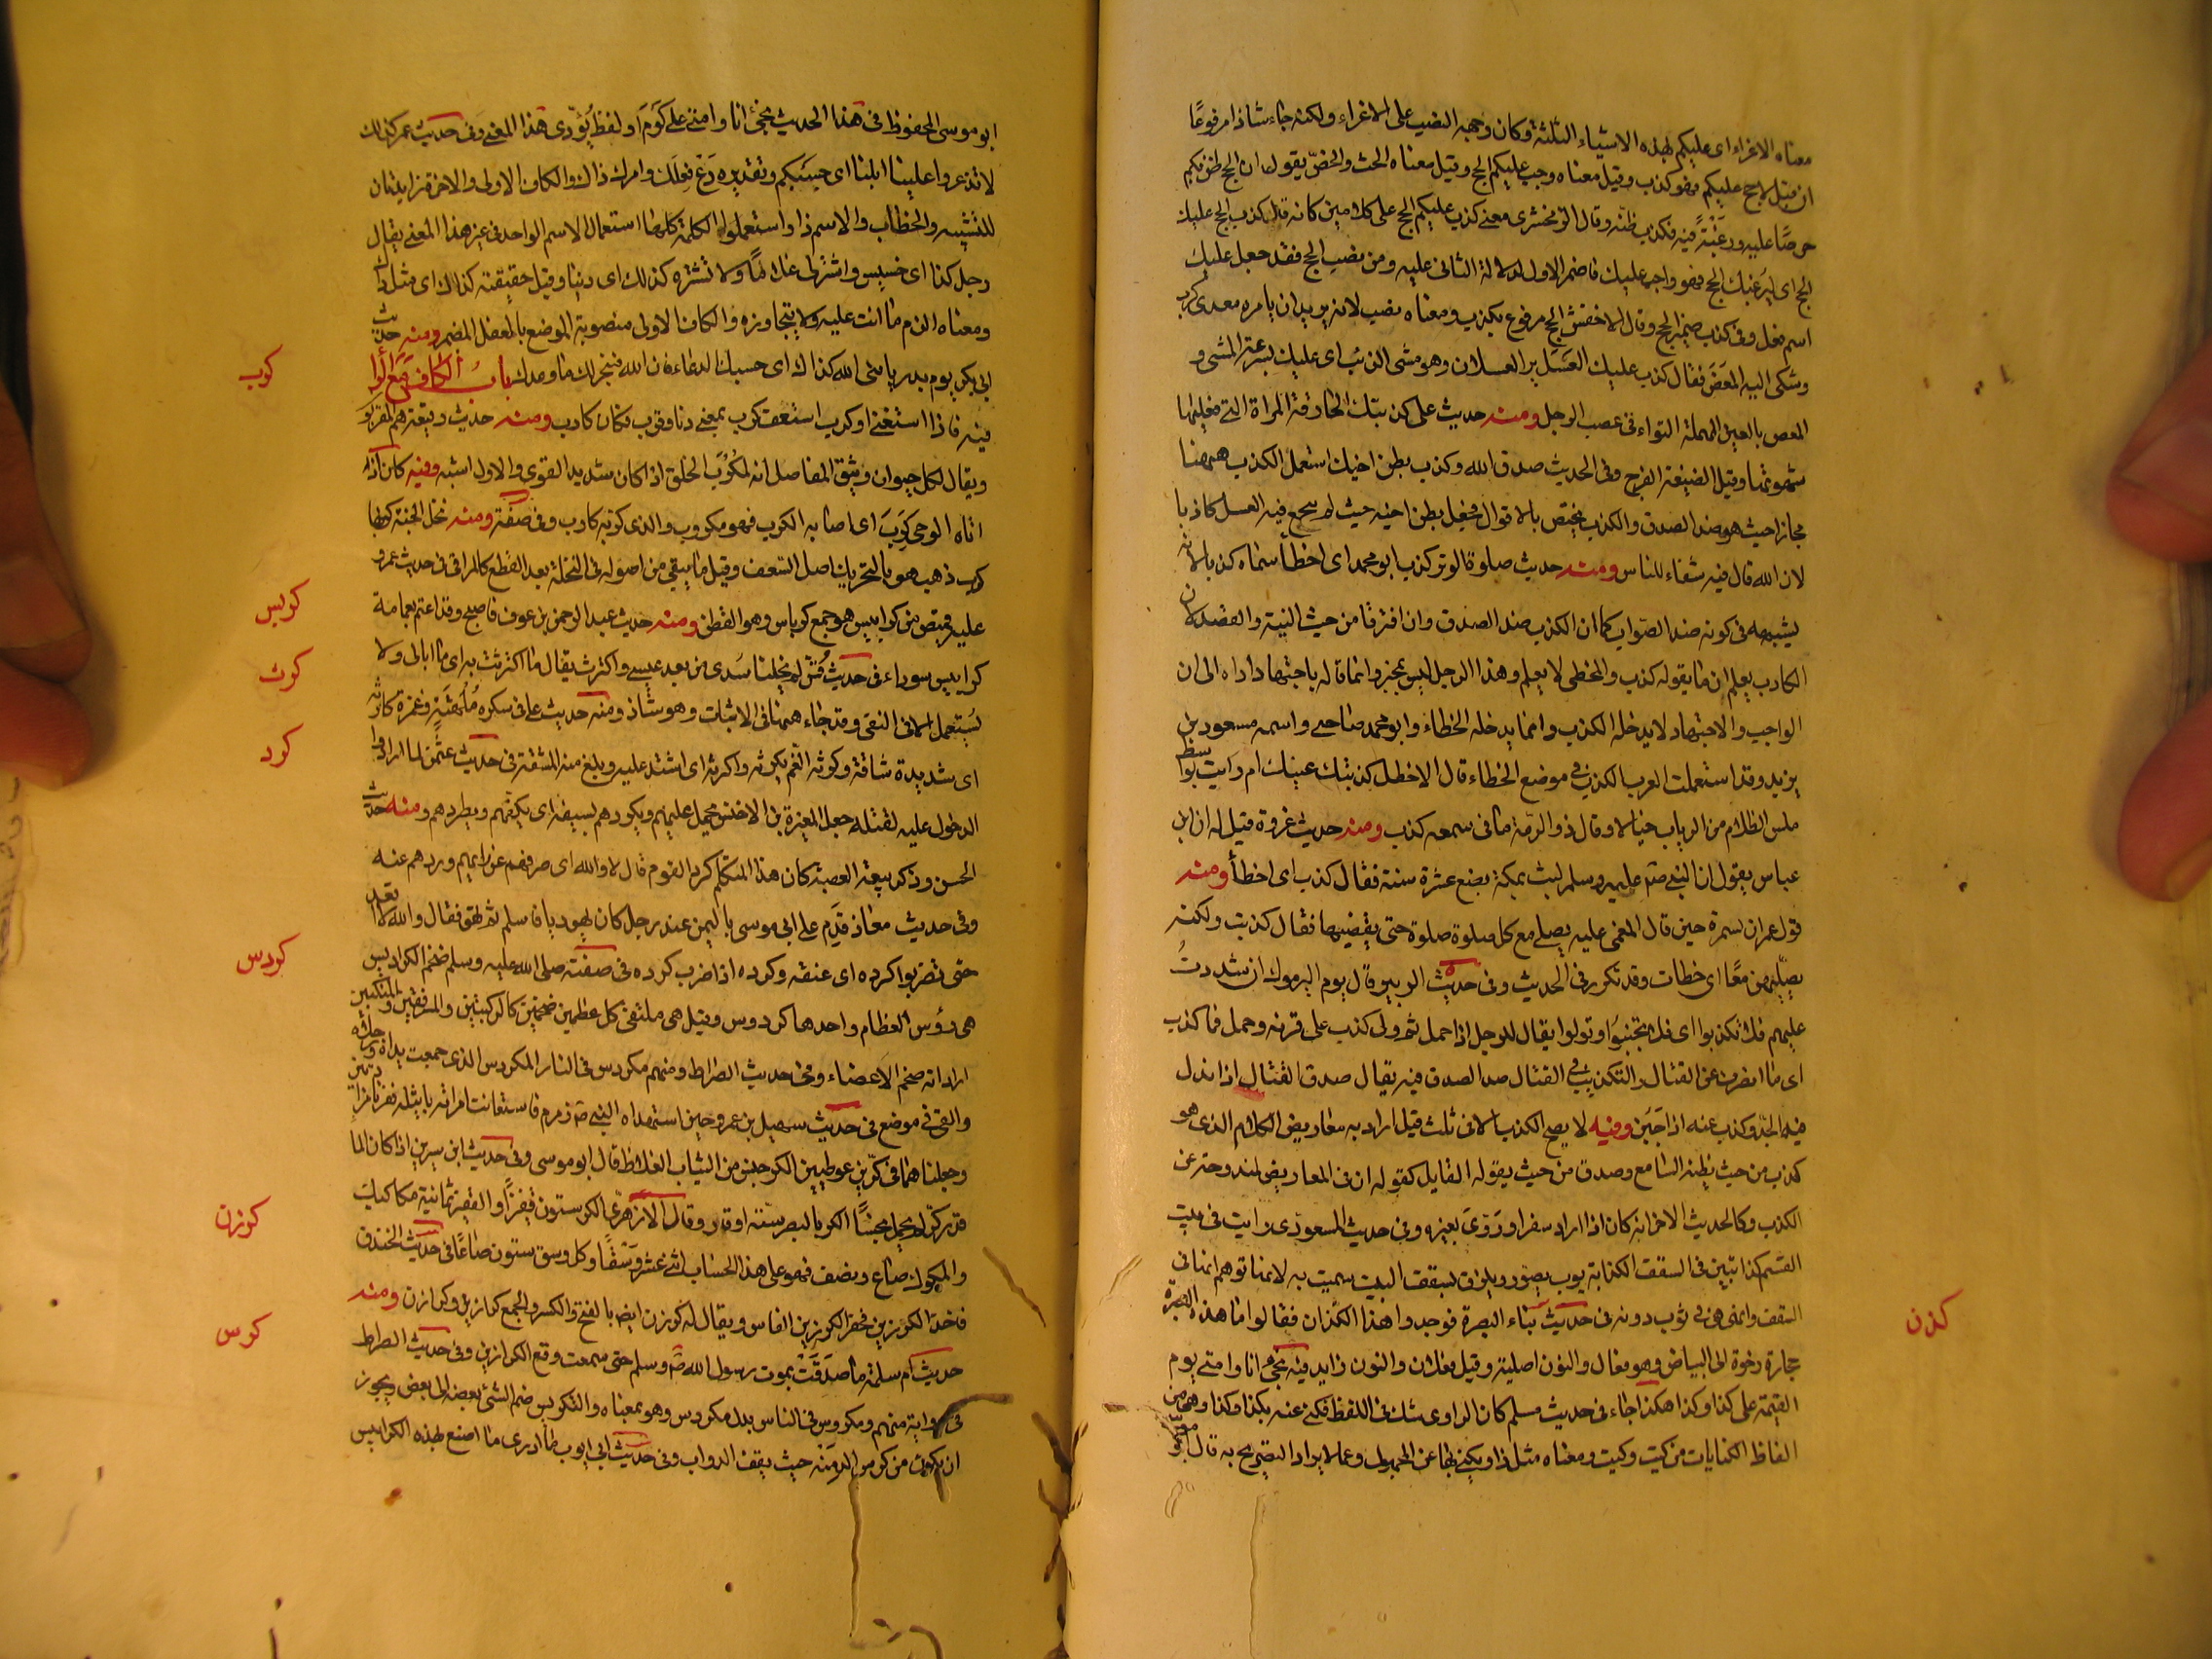 معناه الاغراء اى عليكم بهذه الاشياء الثلثة وكان وجهه النصب على الاغراء ولكنه جاء شاذا مرفوعًا
ان قيل لا حج عليكم فهو كذب وقيل معناه وجب عليكم الحج وقيل معناه الحث والحضّ يقول ان الحج ظن بكم
حرصًا عليه ورغبة فيه فكذب ظنّه وقال الزمخشرى معنى كذب عليكم الحج على كلامين كانه قال كذب الحج عليك
الحج اى ليرغبك الحج فهو واجب عليك فاضمر الاول لدلالة الثانى عليه ومن نصب الحج فقد جعل عليك
اسم فعل وفى كذب ضمير الحج وقال الاخفش الحج مرفوع بكذب ومعناه نصب لانه يريد ان يامره معدى كرب
وشكى اليه المعَصَ فقال كذب عليك العَسَل يريد العسلان وهو مشى الذئب اى عليك بسرعة المشى و
المعص بالعين المهملة التواء فى عصب الرجل ومنه حديث على كذبتك الحارقة المراة التى تغلبها
شهوتها وقيل الضيقة الفرج وفى الحديث صدق الله وكذب بطن اخيك استعمل الكذب ههنا
مجازا حيث هو ضد الصدق والكذب يختص بالاقوال فجعل بطن اخيه حيث لم ينجع فيه العسل كاذبا
لان الله قال فيه شفاء للناس ومنه حديث صلوة الوتر كذب ابو محمد اى اخطأ سماه كذبا لانه
يشبهه فى كونه ضد الصّواب كما ان الكذب ضد الصدق وان افترقا من حيث النية والقصد لان
الكاذب يعلم ان ما يقوله كذب والمخطى لا يعلم وهذا الرجل ليس بمخبر وانما قاله باجتهاد اداه الى ان
الواجب والاجتهاد لا يدخله الكذب وانما يدخله الخطاء وابو محمد صاحبى واسمه مسعود بن
يزيد وقد استعملت العرب الكذب فى موضع الخطاء قال الاخطل كذبتك عينك ام رايت بواسط
ملس الظلام من الرباب خيالا وقال ذو الرمّة ما فى سمعه كذب ومنه حديث عروة قيل له ان ابن
عباس يقول ان النبى صلم عليه وسلم لبث بمكة بضع عشرة سنة فقال كذب اى اخطأ ومنه
قول عمران لسمرة حين قال المغمى عليه يصلى مع كل صلوة صلوة حتى يقضيها فقال كذبت ولكنه
يصلّيهن معًا اى خطات وقد تكرر فى الحديث وفى حديث الزبير قال يوم اليرموك ان شددتُ
عليهم فلا تكذبوا اى فلا تجبنوا وتولوا يقال للرجل اذا حمل ثم ولى كذب على قرنه وحمل فما كذب
اى ما انصرف عن القتال والتكذيب فى القتال ضد الصدق فيه يقال صدق القتال اذا بذل
فيه الجدّ وكذب عنه اذا جَبُن وفيه لا يصح الكذب الا فى ثلث قيل اراد به معاريض الكلام الذى هو
كذب من حيث يظنه السامع وصدق من حيث يقوله القايل كقوله ان فى المعاريض لمندوحة عن
الكذب وكالحديث الاخر انه كان اذا اراد سفرا ورّى بغيره وفى حديث المسعودى رايت فى بيت
القسم كذابتين فى السقف الكذابة ثوب يصوّر ويلزق بسقف البيت سميت به لانها توهم انها فى
السقف وانما هى فى ثوب دونه فى حديث بناء البصرة فوجدوا هذا الكذّان فقالوا ما هذه البصرة
كذن
حجارة رخوة الى البياض وهو فعال والنون اصلية وقيل فعلان والنون زايد فيه نجئ انا وامتى يوم
القيمة على كذا وكذا هكذا جاء فى حديث مسلم كان الراوى شك فى اللفظ فكنى عنه بكذا وكذا وهى من
الفاظ الكنايات من كيت وكيت ومعناه مثل ذا ويكنى بها عن المجهول وعما لا يراد التصريح به قال
ابو موسى المحفوظ فى هذا الحديث نجئ انا وامتى على كَوَم او لفظ يُؤدّى هذا المعنى وفى حديث عمر كذلك
لا تذعروا علينا ابلنا اى حسبكم وتقديره دَعْ فعلك وامرك ذاك والكاف الاولى والاخرة زايدتان
للتشبيه والخطاب والاسم ذا واستعملوا الكلمة كلها استعمال الاسم الواحد فى غير هذا المعنى يقال
رجل كذاك اى خسيس واشتر لى غلامًا ولا تشتره كذلك اى دنيا وقيل حقيقته كذاك اى مثل ذاك
ومعناه الزم ما انت عليه ولا يتجاوزه والكاف الاولى منصوبة الموضع بالفعل المضمر ومنه حديث
ابى بكر يوم بدر يا نبى الله كذاك اى حسبك الدعاء فان الله منجز لك ما وعدك باب الكاف مع الرا
كرب
فيه فاذا استغنى او كرب استعف كرب بمعنى دنا وقرب فكان كارب ومنه حديث رقيقة هم المقربو
ويقال لكل حيوان وثيق المفاصل انه لمكرَب الخلق اذا كان شديد القوى والاول اشبه وفيه كان اذا
اتاه الوحى كرِبَ اى اصابه الكرب فهو مكروب والذى كربه كارب وفى صفة ومنه نخل الجنة كربها
كرب ذهب هو بالتحريك اصل السّعف وقيل ما يبقى من اصوله فى النخلة بعد القطع كالمراقى فى حديث عمرو
كربس
عليه قميص من كرابيس هو جمع كرباس وهو القطن ومنه حديث عبد الرحمن بن عوف فاصبح وقد اعتم بعمامة
كرث
كرابيس سوداء فى حديث قُسّ لم يخلنا سُدى من بعد عيسى واكترث يقال ما اكترثت به اى ما ابالى ولا
يُستعمل الا فى النفى وقد جاء ههنا فى الاثبات وهو شاذ ومنه حديث على فى سكره مُلهثة وغمرة كارثه
كرد
اى شديدة شاقة وكرثه الغم يكرثه واكرثه اى اشتد عليه وبلغ منه المشقة فى حديث عثمن لما ارادوا
الدخول عليه لقتله جعل المغيرة بن الاخنس يحمل عليهم ويكردهم بسيفه اى يكفّهم ويطردهم ومنه حديث
الحسن وذكر بيعة العقبة كان هذا المتكلم كرد القوم قال لا والله اى صرفهم عن رايهم وردهم عنه
وفى حديث معاذ قدِم على ابى موسى باليمن عند رجل كان يهوديا فاسلم ثم تهوّد فقال والله لا اقعد
كردس
حتى تضربوا كرده اى عنقه وكرده اذا ضرب كرده فى صفته صلى الله عليه وسلم ضخم الكراديس
هى رؤس العظام واحدها كردوس وقيل هى ملتقى كل عظمين ضخمين كالركبتين والمرفقين والمنكبين
اراد انه ضخم الاعضاء وفى حديث الصراط ومنهم مكردس فى النار المكردس الذى جمعت يداه ورجلاه
والقى فى موضع فى حديث سهيل بن عمرو حين استهداه النبى صم زمزم فاستعانت امراته باثيلة ففرتا مزادتين
وجعلتاهما فى كرّين غوطيين الكر جنس من الثياب الغلاظ قال ابو موسى وفى حديث ابن سيرين اذا كان الما
قدر كرّ لم يحمل نجسًا الكر بالبصرة ستة اوقار وقال الازهرى الكر ستون قفيزًا والقفيز ثمانية مكاكيك
كرزن
والمكوك صاع ونصف فهو على هذا الحساب اثنى عشر وسقًا وكل وسق ستون صاعًا فى حديث الخندق
فاخذ الكرزين فحفر الكرزين الفاس ويقال له كرزن ايض بالفتح والكسر والجمع كرازين وكرازن ومنه
كرس
حديث ام سلمة ما صدّقتُ بموت رسول الله صم وسلم حتى سمعت وقع الكرازين وفى حديث الصراط
فى رواية منهم ومكروس فى الناس بدل مكردس وهو بمعناه والتكريس ضم الشئ بعضه الى بعض ويجوز
ان يكون من كرس الدِمنة حيث يقف الدواب وفى حديث ابى ايوب ما ادرى ما اصنع بهذه الكراييس